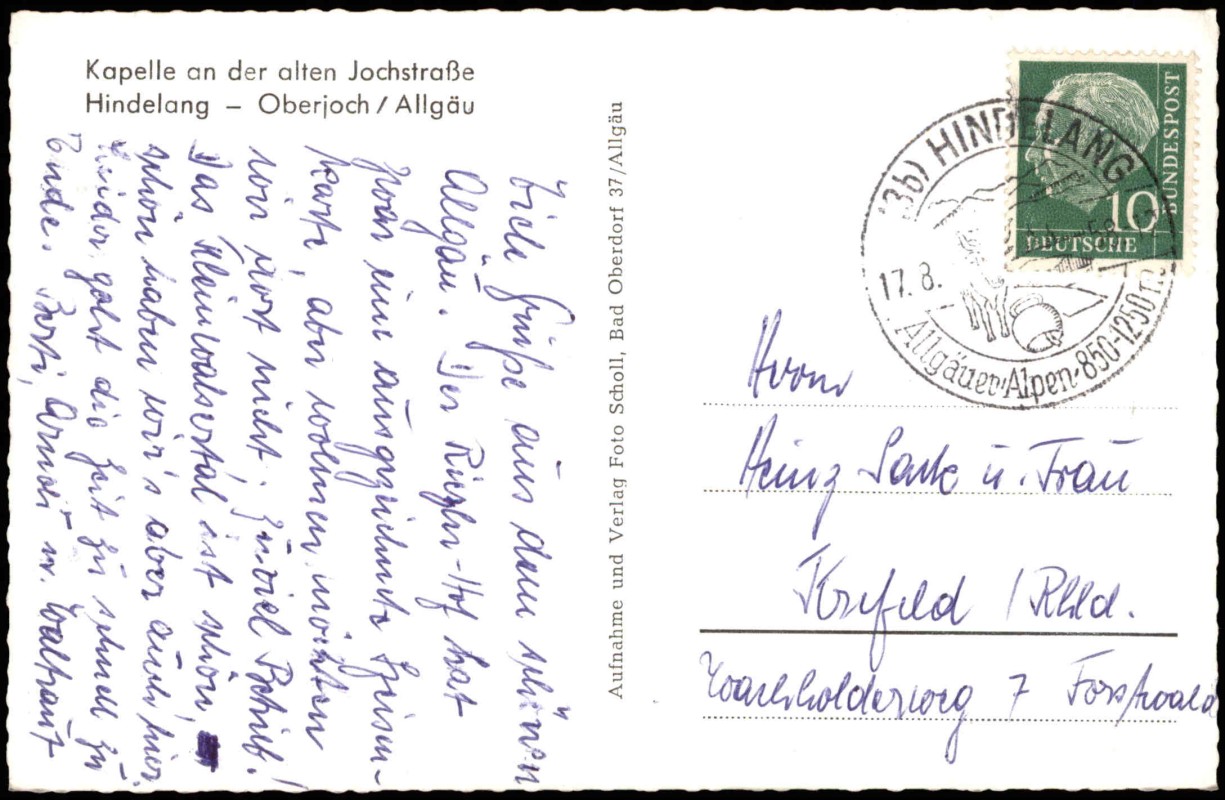 Kapelle an der alten Jochstraße
Hindelang – Oberjoch / Allgäu
Viele Grüße aus dem schönen
Allgäu. Der Riezler-Hof hat
zwar eine ausgezeichnete Speisen-
karte, aber wohnen möchten
wir dort nicht; zuviel Betrieb!
Das Kleinwalsertal ist schön,
schön haben wir's aber auch hier
Leider geht die Zeit zu schnell zu
Ende. Berti, Arnold u. Waltraut
Aufnahme und Verlag Foto Scholl, Bad Oberdorf 37/Allgäu
BUNDESPOST
10
DEUTSCHE
(13b) HINDELANG
17. 8.
Allgäuer-Alpen-850-1250 m
Herrn
Heinz Sack u. Frau
Krefeld / Rhld.
Wachholderweg 7 Forstwald